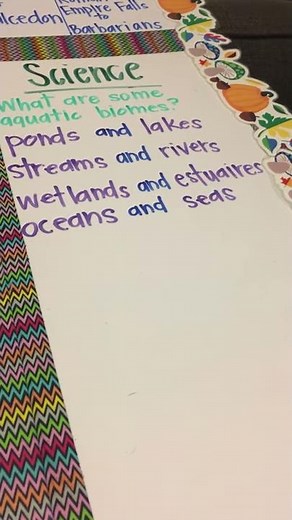 lcedon
Empire Falls
to
Barbarians
Science
What are some
aquatic biomes?
ponds and lakes
streams and rivers
wetlands and estuaires
oceans and seas